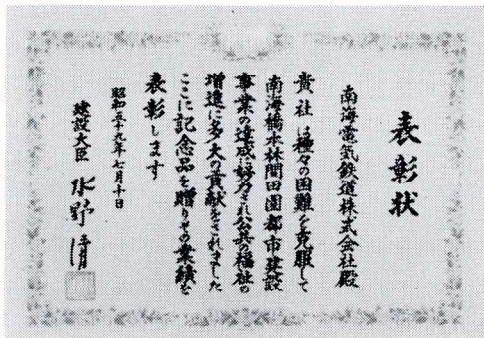 表彰状
南海電気鉄道株式会社殿
貴社は種々の困難を克服して
南海橋本林間田園都市建設
事業の達成に努力され公共の福祉の
増進に多大の貢献をされました
ここに記念品を贈りその業績を
表彰します
昭和五十九年七月十日
建設大臣 水野清